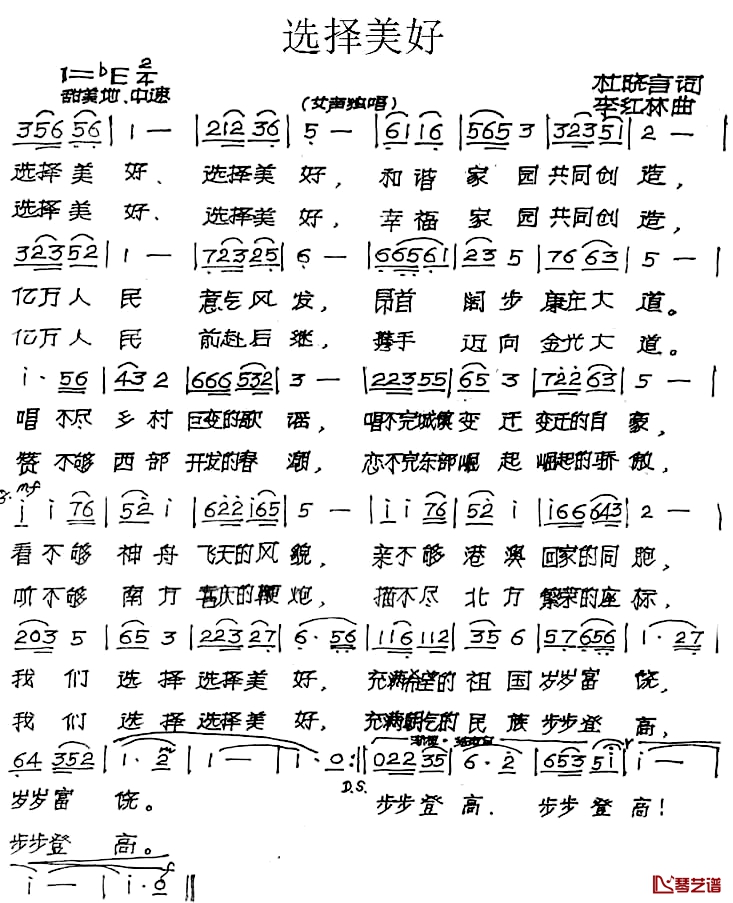 选择美好
1=♭E 2/4
杜晓言词
甜美地、中速
(女声独唱)
李红林曲
356 56 | 1 — | 212 36 | 5 — | 61 16 | 565 3 | 323 51 | 2 — |
选择美 好、 选择美 好， 和谐 家 园 共同创 造，
选择美 好、 选择美 好， 幸福 家 园 共同创 造，
323 52 | 1 — | 723 25 | 6 — | 66561 | 23 5 | 76 63 | 5 — |
亿万人 民 意气风 发， 昂首 阔 步 康庄大 道。
亿万人 民 前赴后 继， 携手 迈 向 金光大 道。
i· 56 | 43 2 | 666 532 | 3 — | 223 55 | 65 3 | 722 63 | 5 — |
唱 不尽 乡 村 巨变的歌 谣， 唱不完城镇 变 迁 变迁的自 豪，
赞 不够 西 部 开发的春 潮， 恋不完东部 崛 起 崛起的骄 傲，
mf
i i 76 | 52 i | 622 i65 | 5 — | i i 76 | 52 i | i66 643 | 2 — |
看不够 神 舟 飞天的风 貌， 亲不够 港 澳 回家的同 胞，
听不够 南 方 喜庆的鞭 炮， 描不尽 北 方 繁荣的座 标，
203 5 | 65 3 | 223 27 | 6· 56 | 116 112 | 35 6 | 57 656 | 1· 27 |
我 们 选 择 选择美 好， 充满希望的 祖 国 岁岁富 饶，
我 们 选 择 选择美 好， 充满朝气的 民 族 步步登 高，
64 352 | 1· 2 | 1 — | i· 0 :‖ 022 35 | 6· 2 | 653 5i | i — |
D.S.
岁岁富 饶。 步步登 高、 步步登 高！
步步登 高。
i — | i· 0 ‖
琴艺谱